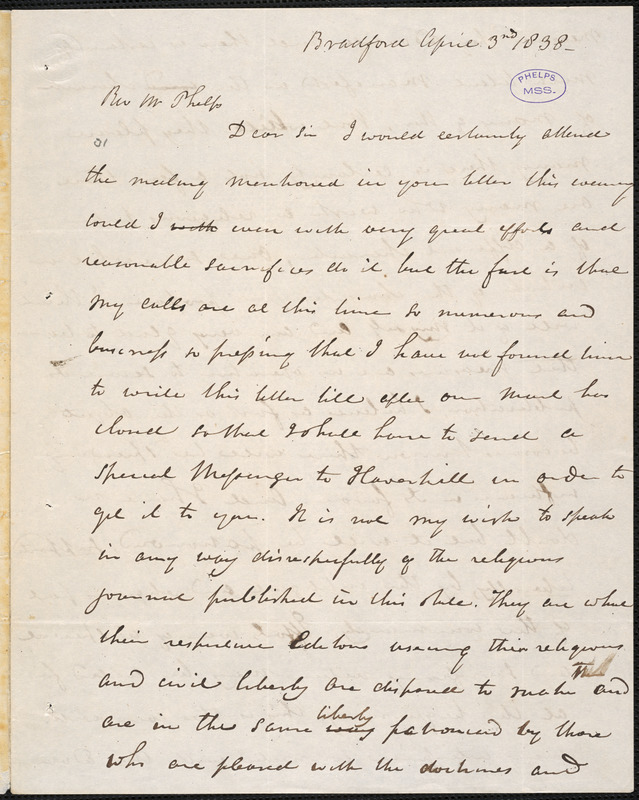 Bradford April 3rd 1838_
PHELPS
MSS.
Rev Mr Phelps
Dear Sir I would certainly attend
the meeting mentioned in your letter this evening
could I with even with very great efforts and
reasonable sacrifices do it, but the fact is that
my calls are at this time so numerous and
business so pressing that I have not found time
to write this letter till after our Mail has
closed so that I shall have to send a
special Messenger to Haverhill in order to
get it to you. It is not my wish to speak
in any way disrespectfully of the religious
journal published in this State. They are what
their respective Editors useing their religious
and civil liberty are disposed to make them and
are in the same way liberty patronized by those
who are pleased with the doctrines and